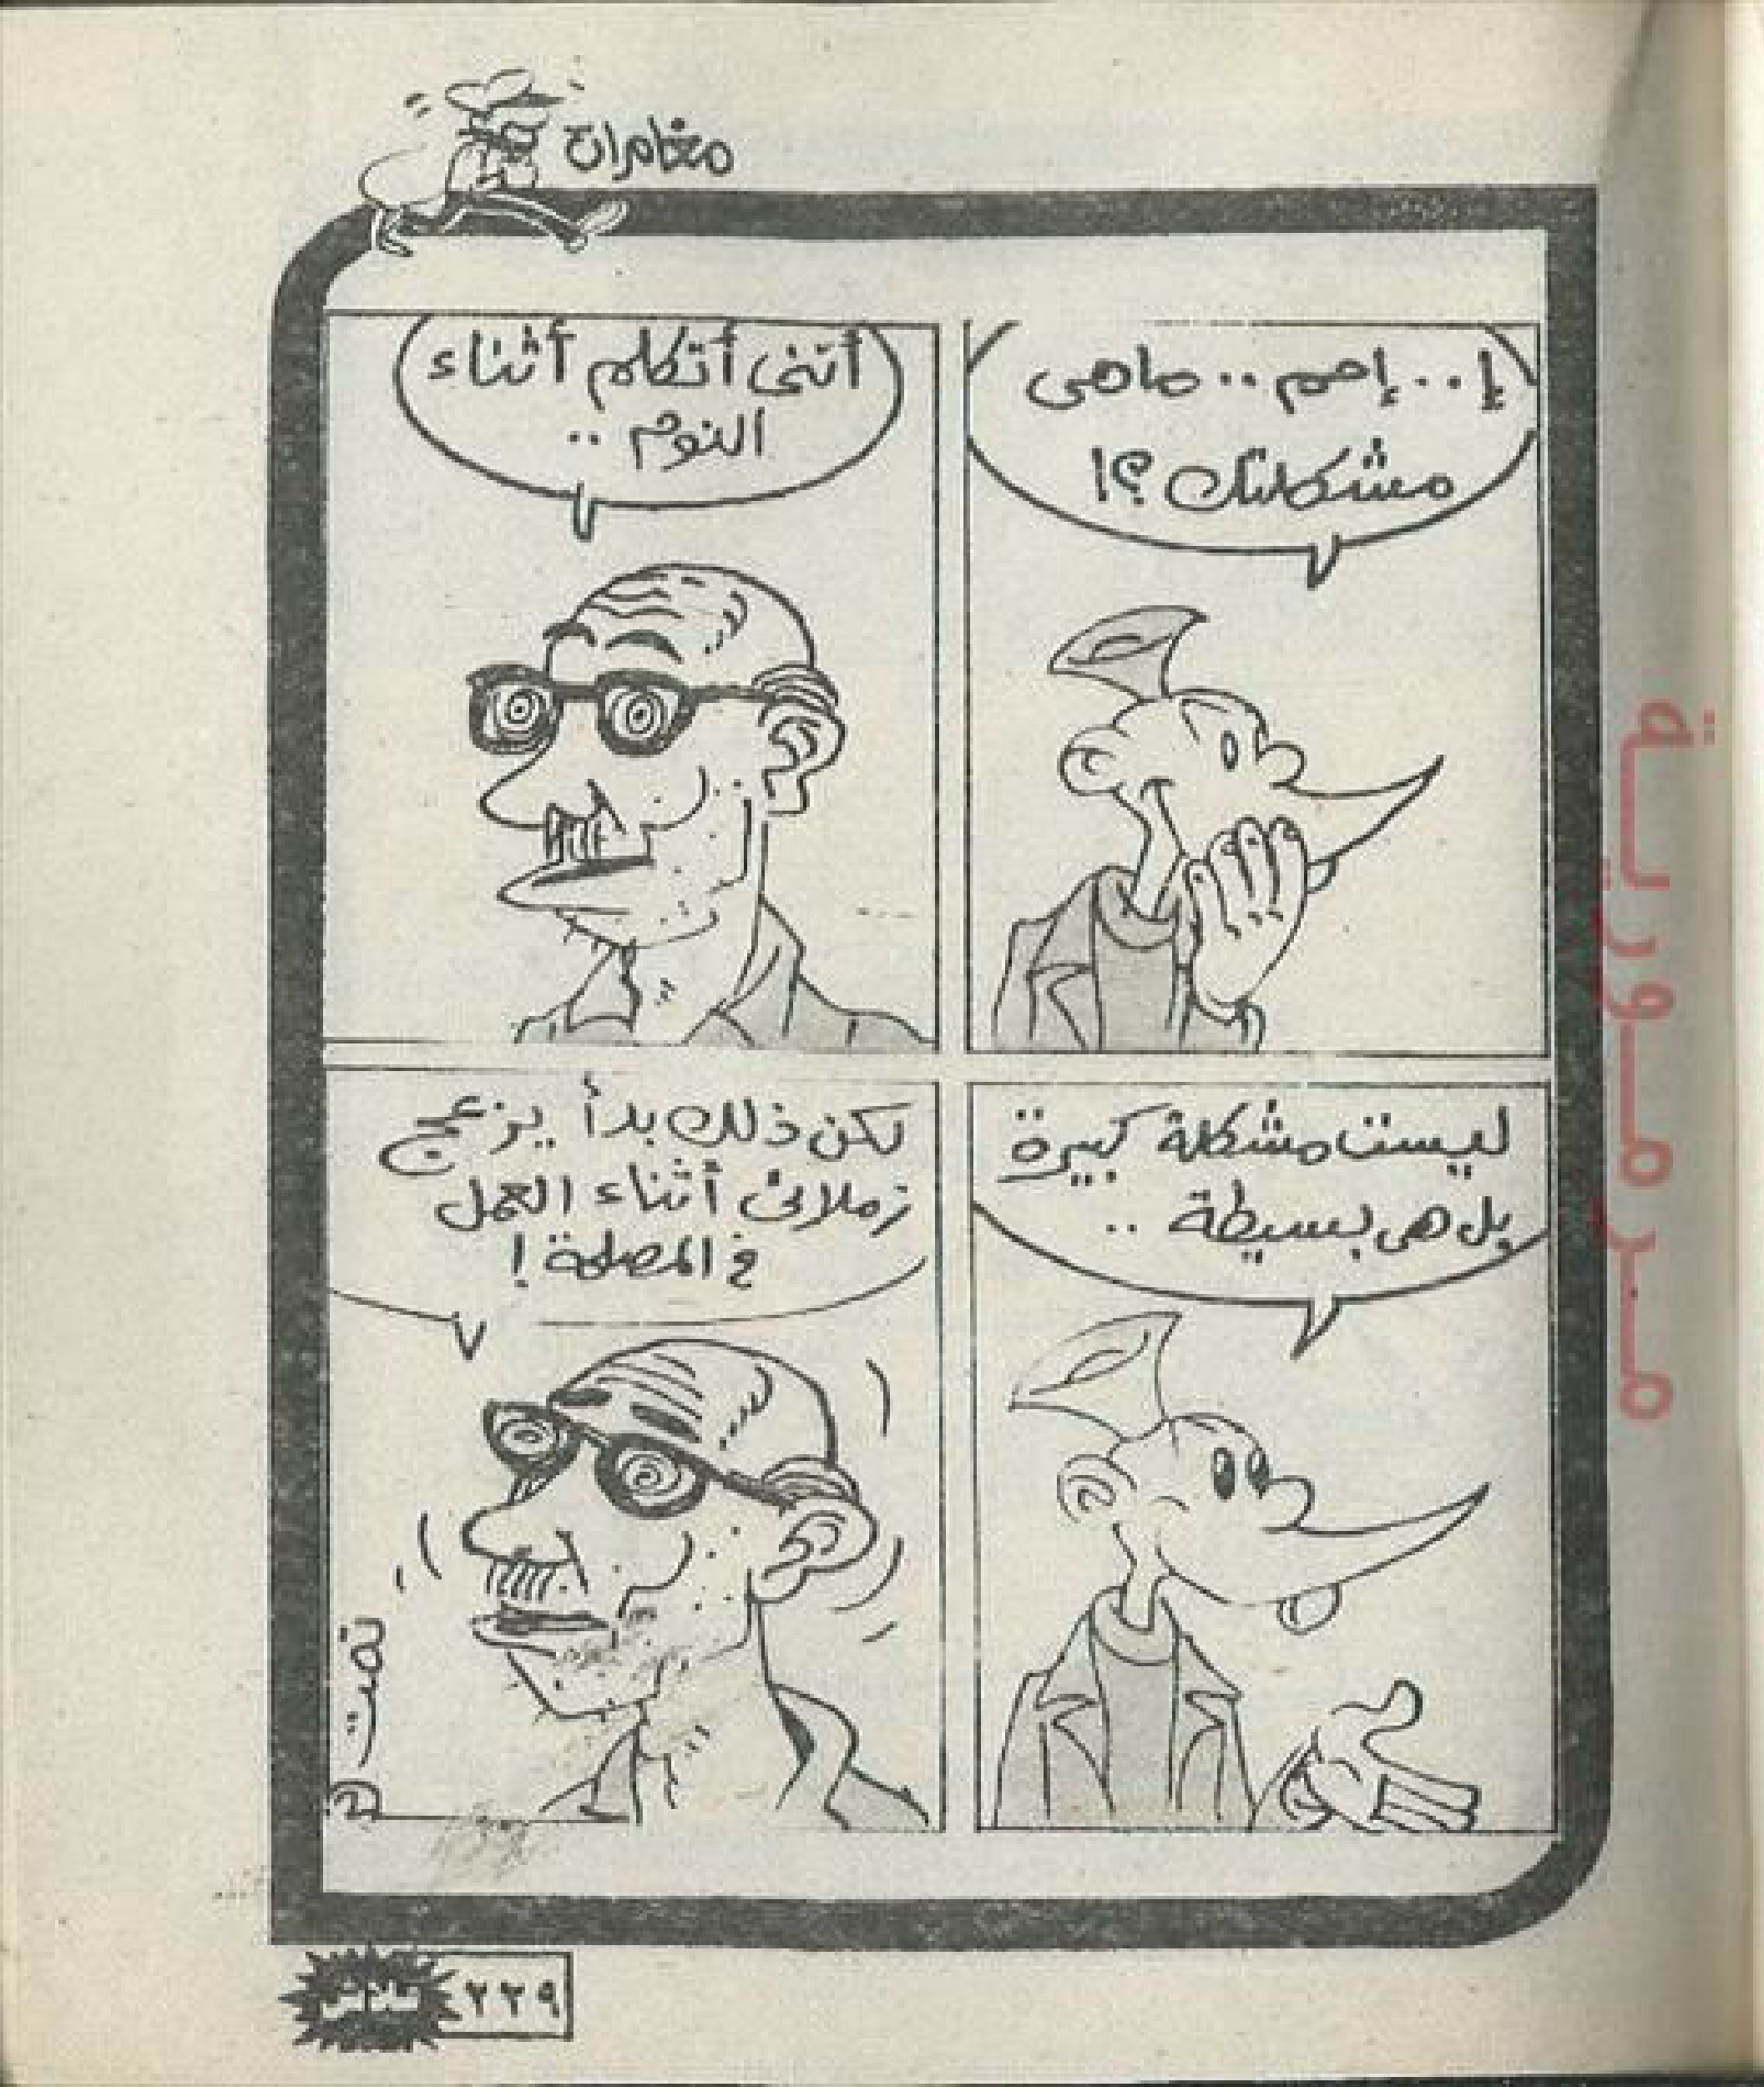 مغامرات
إ.. إحم.. ماهى
مشكلتك ؟!
أننى أتكلم أثناء
النوم ..
ليست مشكلة كبيرة
بل هى بسيطة ..
لكن ذلك بدأ يزعج
زملائى أثناء العمل
فى المصلحة !
تمت
مرمورية
٢٢٩